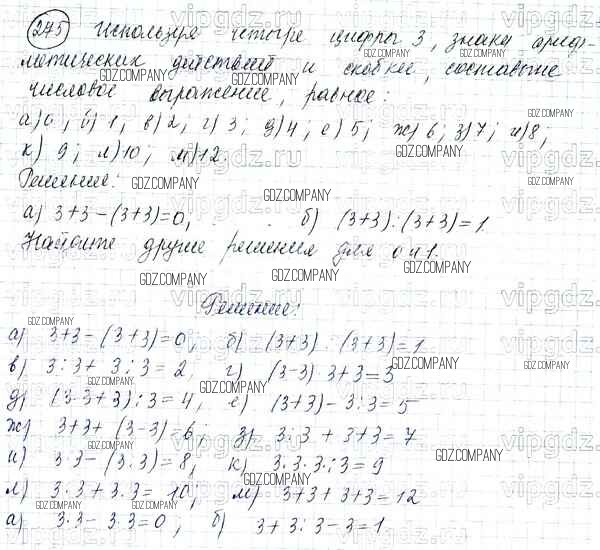 275 Используя четыре цифры 3, знаки ариф-
метических действий и скобки, составьте
числовое выражение, равное:
а) 0; б) 1; в) 2; г) 3; д) 4; е) 5; ж) 6; з) 7; и) 8;
к) 9; л) 10; м) 12.
Решение:
а) 3+3-(3+3)=0, б) (3+3):(3+3)=1.
Найдите другие решения для 0 и 1.
Решение:
а) 3+3-(3+3)=0, б) (3+3):(3+3)=1
в) 3:3+3:3=2, г) (3-3)·3+3=3
д) (3·3+3):3=4, е) (3+3)-3:3=5
ж) 3+3+(3-3)=6; з) 3:3+3+3=7
и) 3·3-(3:3)=8, к) 3·3·3:3=9
л) 3·3+3:3=10; м) 3+3+3+3=12
а) 3·3-3·3=0, б) 3+3:3-3=1